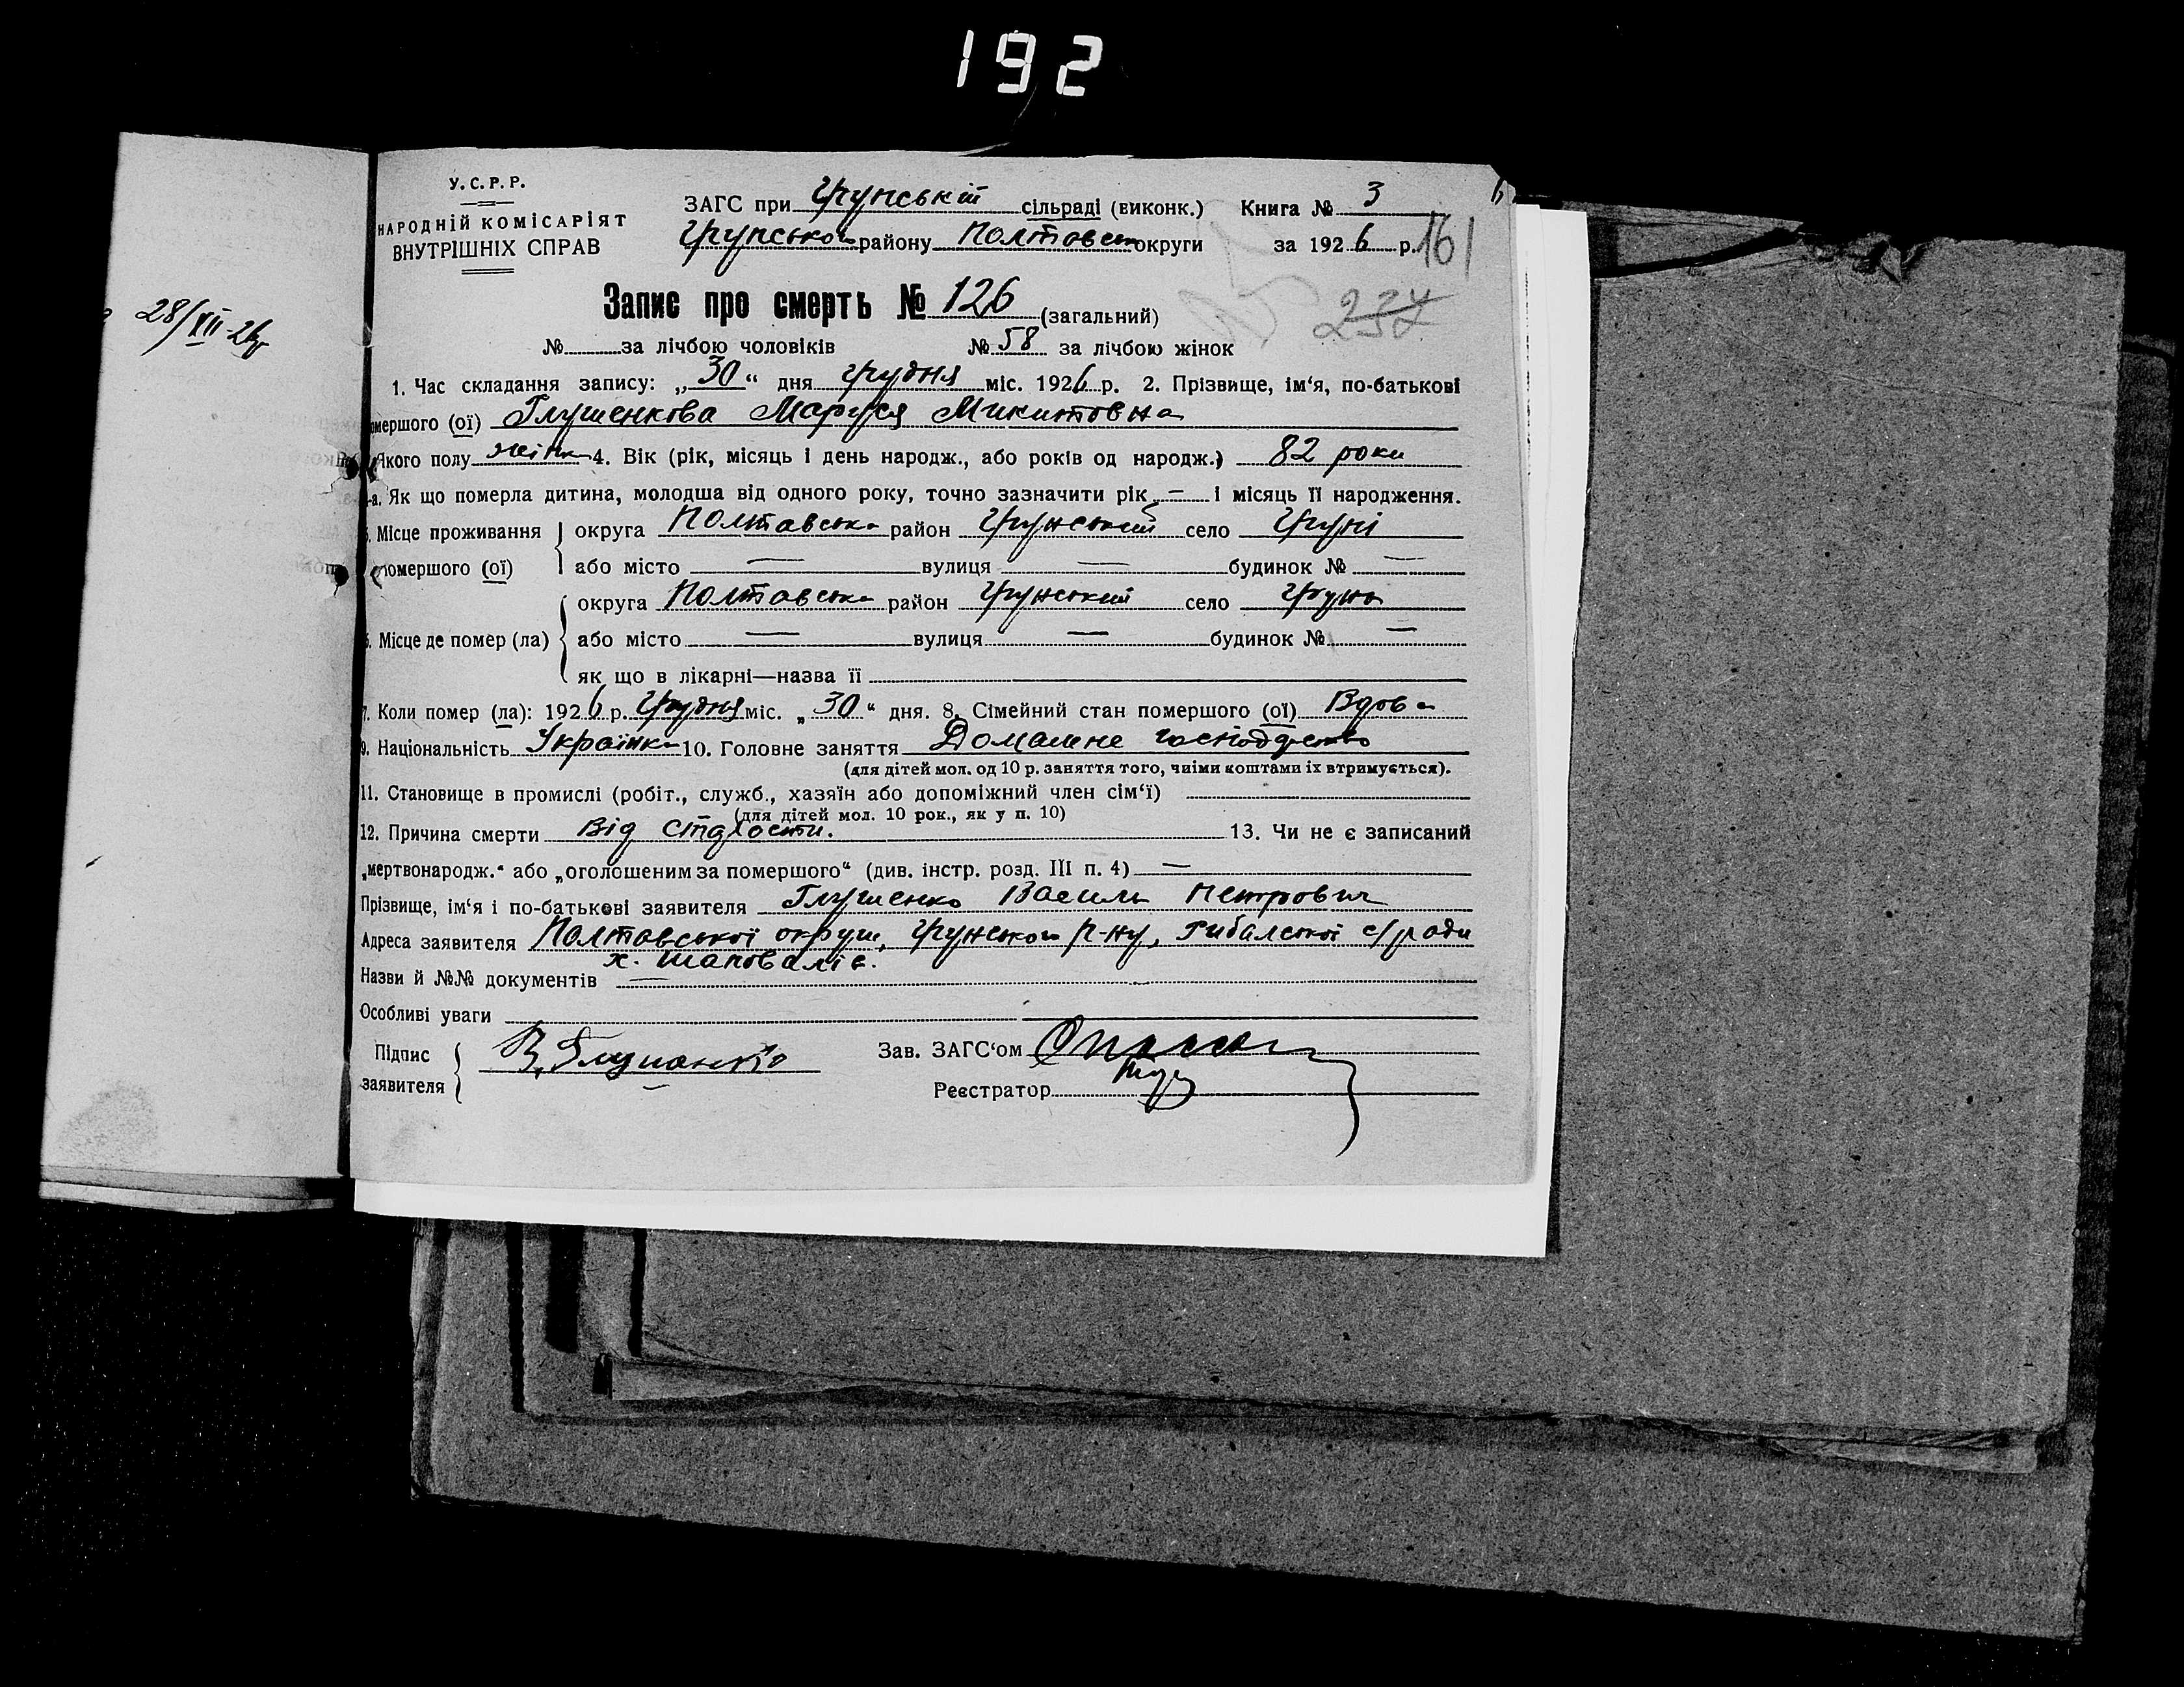 192
28/XII-26р
У.С.Р.Р.
НАРОДНІЙ КОМІСАРІЯТ
ВНУТРІШНІХ СПРАВ
ЗАГС при Грунській сільраді (виконк.) Книга № 3
Грунського району Полтавськ округи за 1926 р. 161
Запис про смерть № 126 (загальний) 237
№ за лічбою чоловіків № 58 за лічбою жінок
1. Час складання запису: „30“ дня грудня міс. 1926 р. 2. Прізвище, ім‘я, по-батькові
омершого (ої) Глушенкова Маруся Микитовна
Якого полу жінк 4. Вік (рік, місяць і день народж., або років од народж.) 82 роки
-а. Як що померла дитина, молодша від одного року, точно зазначити рік — і місяць її народження.
5. Місце проживання округа Полтавська район Грунський село Груні
помершого (ої) або місто — вулиця — будинок № —
округа Полтавська район Грунський село Грунь
6. Місце де помер (ла) або місто — вулиця — будинок № —
як що в лікарні—назва її
7. Коли помер (ла): 1926 р. Грудня міс. „30“ дня. 8. Сімейний стан помершого (ої) Вдова
9. Національність Українка 10. Головне заняття Домашне господарство
(для дітей мол. од 10 р. заняття того, чиїми коштами їх втримується).
11. Становище в промислі (робіт., служб., хазяїн або допоміжний член сім‘ї)
(для дітей мол. 10 рок., як у п. 10)
12. Причина смерти Від старости. 13. Чи не є записаний
„мертвонародж.“ або „оголошеним за помершого“ (див. інстр. розд. III п. 4) —
Прізвище, ім‘я і по-батькові заявителя Глушенко Василь Петрович
Адреса заявителя Полтавської округи, Грунського р-ну, Рибалської с/ради
х. Шаповалів.
Назви й №№ документів —
Особливі уваги
Підпис
заявителя В. Глушенко
Зав. ЗАГС‘ом
Реєстратор